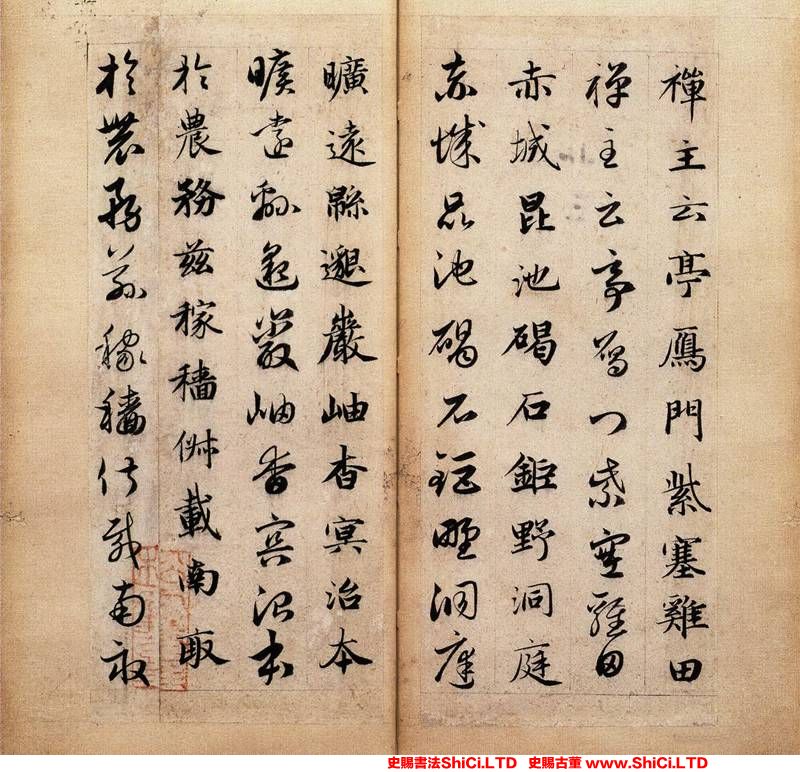 禪主云亭鴈門紫塞雞田
禪主云亭鴈門紫塞雞田
赤城昆池碣石鉅野洞庭
赤城昆池碣石鉅野洞庭
曠遠緜邈巖岫杳冥治本
曠遠緜邈巖岫杳冥治本
於農務茲稼穡俶載南畝
於農務茲稼穡俶載南畝
史賜書法ShiCi.LTD 史賜古董 www.ShiCi.LTD